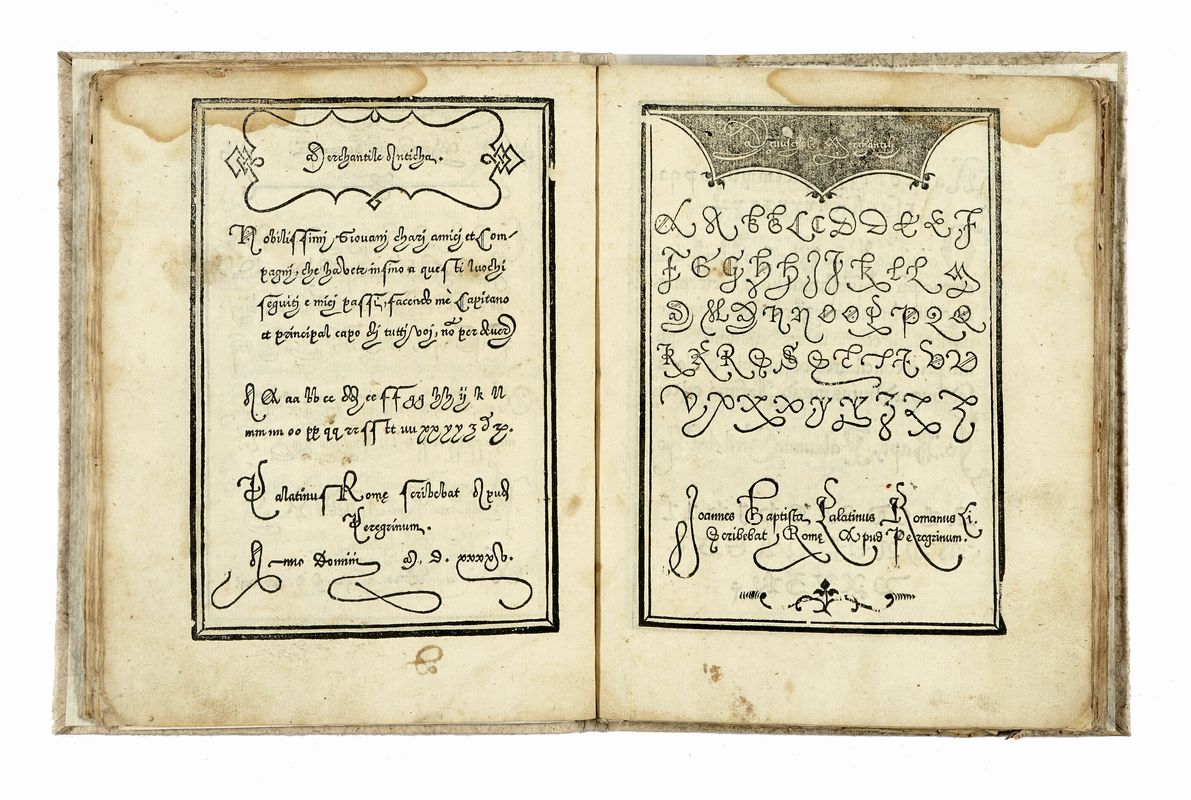 Merchantile Anticha.
Nobilissimi Giovani chari amici et Com-
pagni, che havete insino a questi luochi
seguiti e miei passi, facendo mè Capitano
et principal capo di tutti voi, nõ per dever
A A aa bb cc dd ee ff gg hh ij k ll
mm nn oo pp qq rr ss tt uu xx yy z z z.
Palatinus Romę scribebat Apud
Peregrinum.
Anno Domini M. D. xxxxv.
Maiuscole Merchantili
A A B B C C D D E E F
F G G H H I I K L L M
M M M N N O O P P Q Q
R R R S S S T T T V V
V X X X Y Y Z Z Z
Joannes Baptista Palatinus Romanus Ci.
Scribebat Romę Apud Peregrinum.